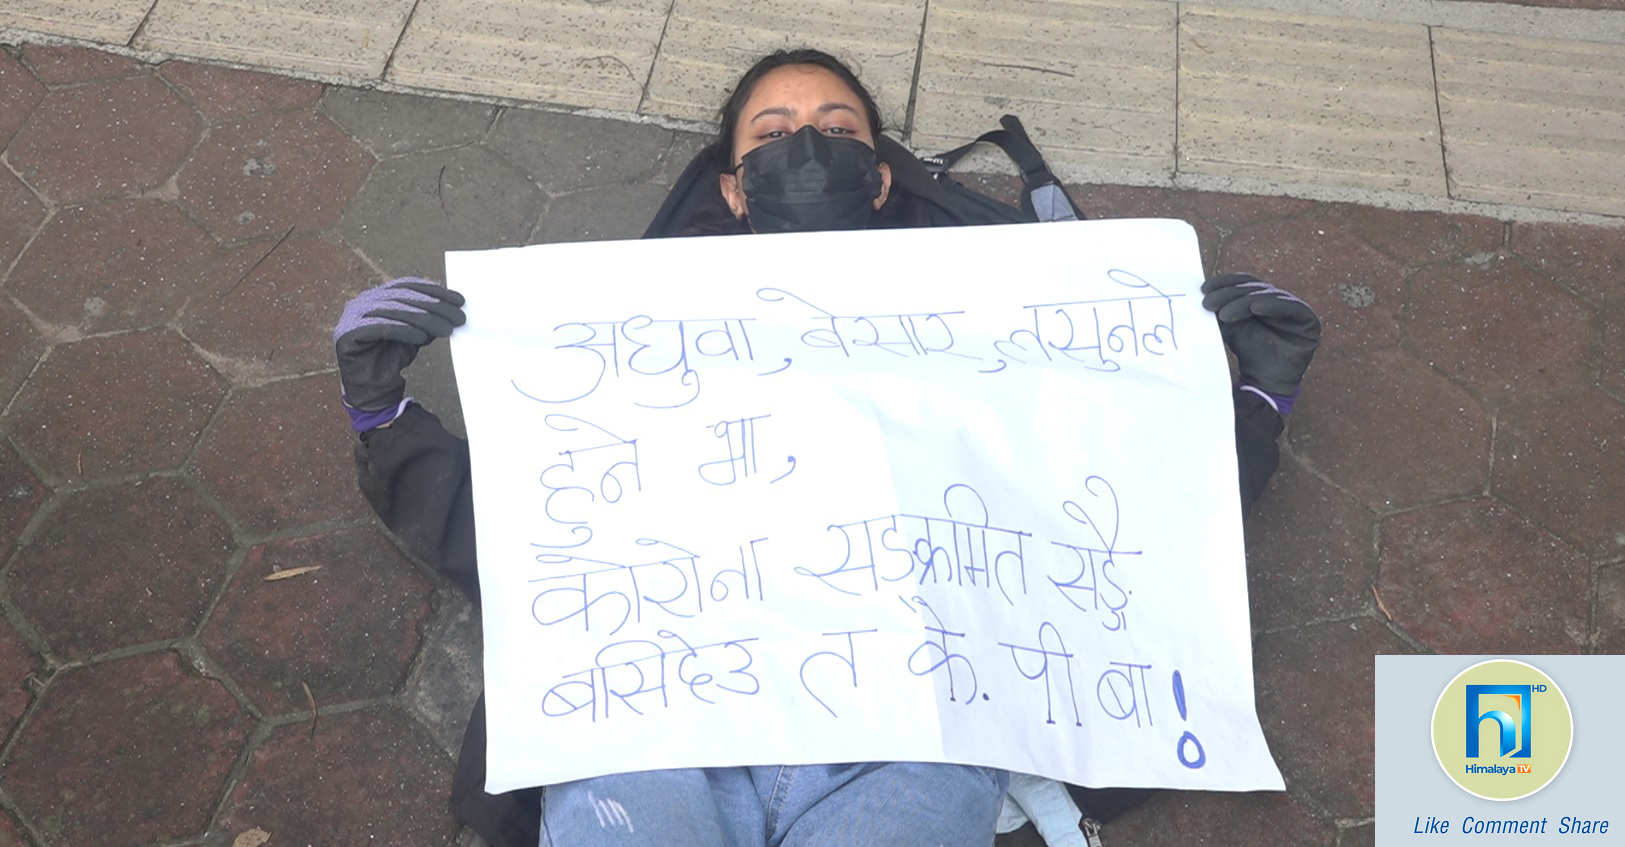 अधुवा, बेसार, लसुनले
हुने भा,
कोरोना सङ्क्रमित सङै
बसिदेउ त के. पी बा!
HD
Himalaya TV
Like Comment Share